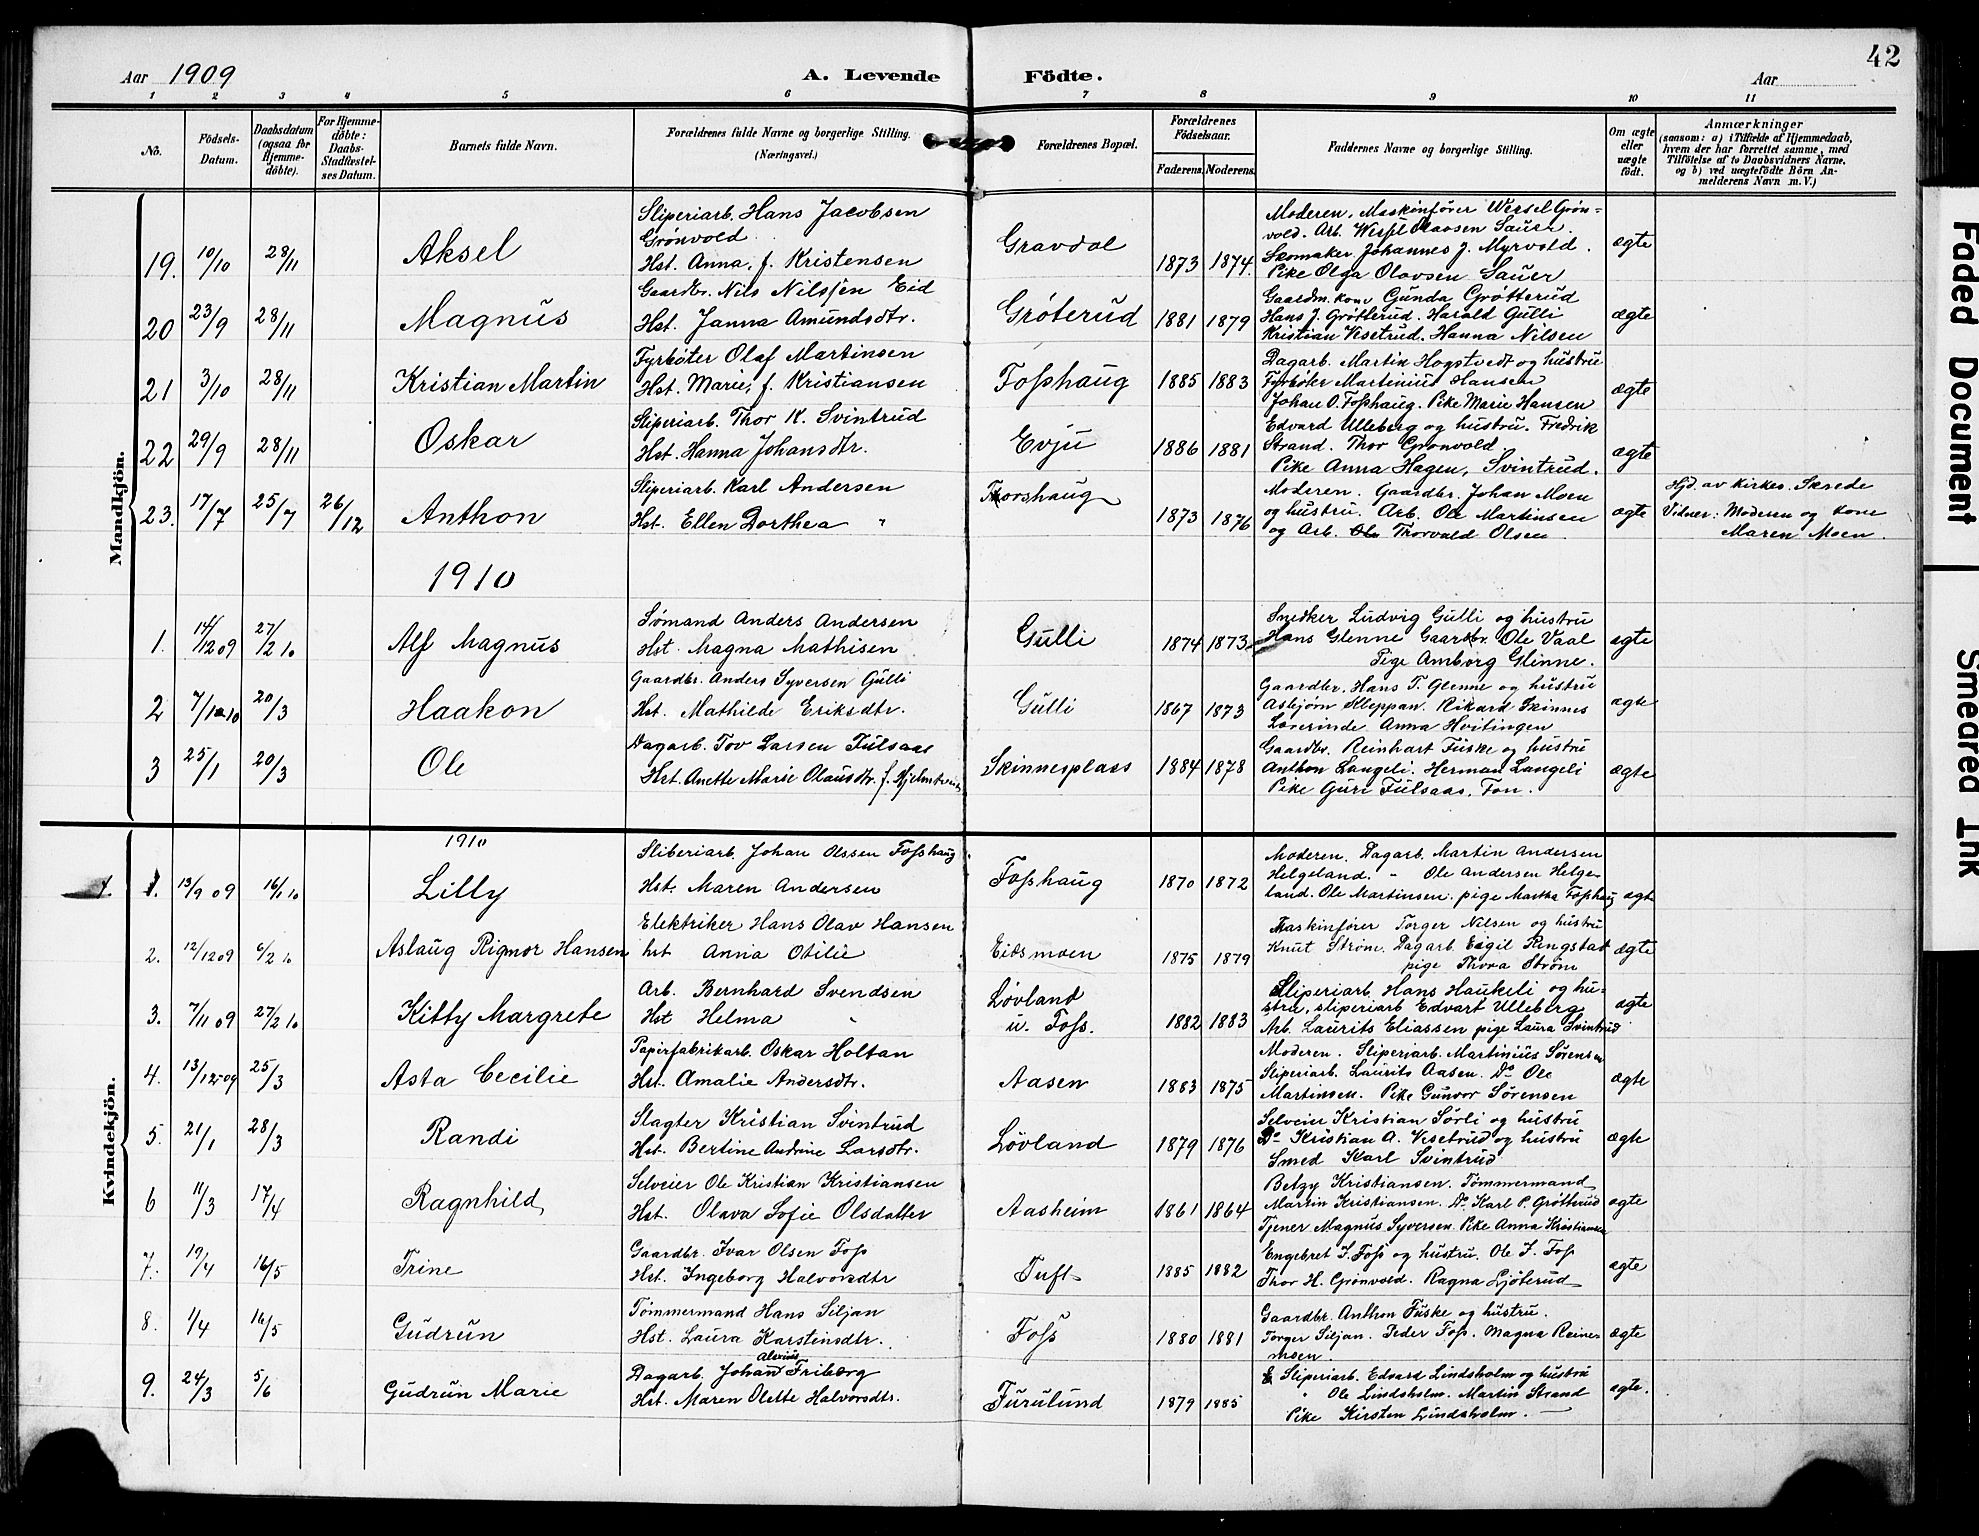 42
Aar 1909
A. Levende Födte.
Aar
1 2 3 4 5 6 7 8 9 10 11
Nö.
Födsels-Datum.
Daabsdatum (ogsaa for Hjemme-döbte).
For Hjemme-döbte: Daabs-Stadfæstel-ses Datum.
Barnets fulde Navn.
Forældrenes fulde Navne og borgerlige Stilling. (Næringsvei.)
Forældrenes Bopæl.
Forældrenes Födselsaar.
Faderens. Moderens.
Faddernes Navne og borgerlige Stilling.
Om ægte eller uægte födt.
Anmærkninger
(saasom: a) i Tilfælde af Hjemmedaab, hvem der har forrettet samme, med Tilföielse af to Daabsvidners Navne, og b) ved uægtefödte Börn An-melderens Navn m. V.)
Mandkjön.
19. 10/10 28/11 Aksel
Sliperiarb. Hans Jacobsen
Grönvold
Hst. Anna, f. Kristensen
Gravdal 1873 1874.
Moderen. Maskinfører Wersel Grøn-
vold. Arb. Olavsen Sauer.
Skomaker Johannes J. Myrvold.
Pike Olga Olavsen Sauer
ægte
20 23/9 28/11 Magnus
Gaardbr. Nils Nilssen Eid
Hst. Janna Amundsdtr.
Grøterud 1881 1879
Gaardm. kone Gunda Grøtterud
Hans J. Grøtterud. Harald Gulli
Kristian Vesetrud. Hanna Nilsen
ægte
21 3/10 28/11 Kristian Martin
Fyrbøter Olaf Martinsen
Hst. Marie, f. Kristiansen
Fosshaug 1885 1883
Dagarb. Martin Hogstvedt og hustru
Fyrbøter Martinius Hansen
Johan O. Fosshaug. Pike Marie Hansen
ægte
22 29/9 28/11 Oskar
Sliperiarb. Thor K. Svintrud
Hst. Hanna Johansdtr.
Evju 1886 1881
Edvard Ulleberg og hustru. Fredrik
Strand. Thor Grønvold
Pike Anna Hagen, Svintrud.
ægte
23. 17/7 25/7 26/12 Anthon
Sliperiarb. Karl Andersen
Hst. Ellen Dorthea "
Thorshaug 1873 1876
Moderen. Gaardbr. Johan Moen
og hustru. Arb. Ole Martinsen
og Arb. Thorvald Olsen
ægte
Hjd. av kirkes. Skrede
Vidner: Moderen og kone
Maren Moen.
1910
1. 14/12 09 27/2 10 Alf Magnus
Sømand Anders Andersen
Hst. Magna Mathisen
Gulli 1874 1873
Snedker Ludvig Gulli og hustru
Hans Glenne Gaardbr. Ole Vaal
Pige Amborg Glinne.
ægte
2 7/1 10 20/3 Haakon
Gaardbr. Anders Syversen Gulli
Hst. Mathilde Eriksdtr.
Gulli 1867 1873
Gaardbr. Hans T. Glenne og hustru
Asbjørn Kleppan. Rikard Skinnes
Lærerinde Anna Hvitingen
ægte
3 25/1 20/3 Ole
Dagarb. Tov Larsen Fulsaas
Hst. Anette Marie Olausdtr. f.
Skinnesplass 1884 1878
Gaardbr. Reinhart Fuske og hustru
Anthon Langeli. Herman Langeli
Pike Guri Fulsaas, Ton.
ægte
Kvindekjön.
1910
1. 13/9 09 16/1 10 Lilly
Sliberiarb. Johan Olssen Fosshaug
Hst. Maren Andersen
Fosshaug 1870 1872
Moderen. Dagarb. Martin Andersen
Helgeland. " Ole Andersen Helge-
land. Ole Martinsen. pige Martha Fosshaug
ægte
2. 12/12 09 6/2 10 Aslaug Rigmor Hansen
Elektriker Hans Olav Hansen
hst Anna Otilie
Eidsmoen 1875 1879
Maskinfører Torger Nilsen og hustru
Knut Strøm. Dagarb. Eigil Ringstad
pige Thora Strøm
ægte
3. 7/11 09 27/2 10 Kitty Margrete
Arb. Bernhard Svendsen
Hst Helma "
Løvland
u. Foss. 1882 1883
Sliperiarb. Hans Haukeli og hu-
stru, sliperiarb Edvart Ulleberg
Arb. Laurits Eliassen pige Laura Svintrud
ægte
4. 13/12-09 25/3 Asta Cecilie
Papirfabrikarb. Oskar Holtan
Hst. Amalie Andersdtr.
Aasen 1883 1875
Moderen. Sliperiarb. Martinius Sørensen
Sliperiarb. Laurits Aasen. Do Ole
Martinsen. Pike Gunvor Sørensen
ægte
5. 21/1 28/3 Randi
Slagter Kristian Svintrud
Hst. Bertine Andrine Larsdtr.
Løvland 1879 1876
Selveier Kristian Sørli og hustru
Do Kristian A. Vesetrud og hustru
Smed Karl Svintrud
ægte
6 11/3 17/4 Ragnhild
Selveier Ole Kristian Kristiansen
Hst. Olava Sofie Olsdatter
Aasheim 1861 1864
Betzy Kristiansen. Tømmermand
Martin Kristiansen. Do Karl P. Grøtterud
Tjener Magnus Syversen. Pike Anna Kristiansen
ægte
7. 19/4 16/5 Trine
Gaardbr. Ivar Olsen Foss
Hst. Ingeborg Halvorsdtr
Tuft 1885 1882
Engebret I. Foss og hustru. Ole I. Foss
Thor H. Grønvold. Ragna Ljøterud
ægte
8. 1/4 16/5 Gudrun
Tømmermand Hans Siljan
Hst. Laura Karstensdtr.
Foss 1880 1881
Gaardbr. Anthon Fuske og hustru.
Torger Siljan. Peder Foss. Magna Reine-
moen
ægte
9. 24/3 5/6 Gudrun Marie
Alexius
Dagarb. Johan Friberg
Hst. Maren Olette Halvorsdtr.
Furulund 1879 1885
Sliperiarb. Edvard Lindsholm og hustru
" Ole Lindsholm. Martin Strand
Pike Kirsten Lindsholm.
ægte.
Faded Document
Smeared Ink